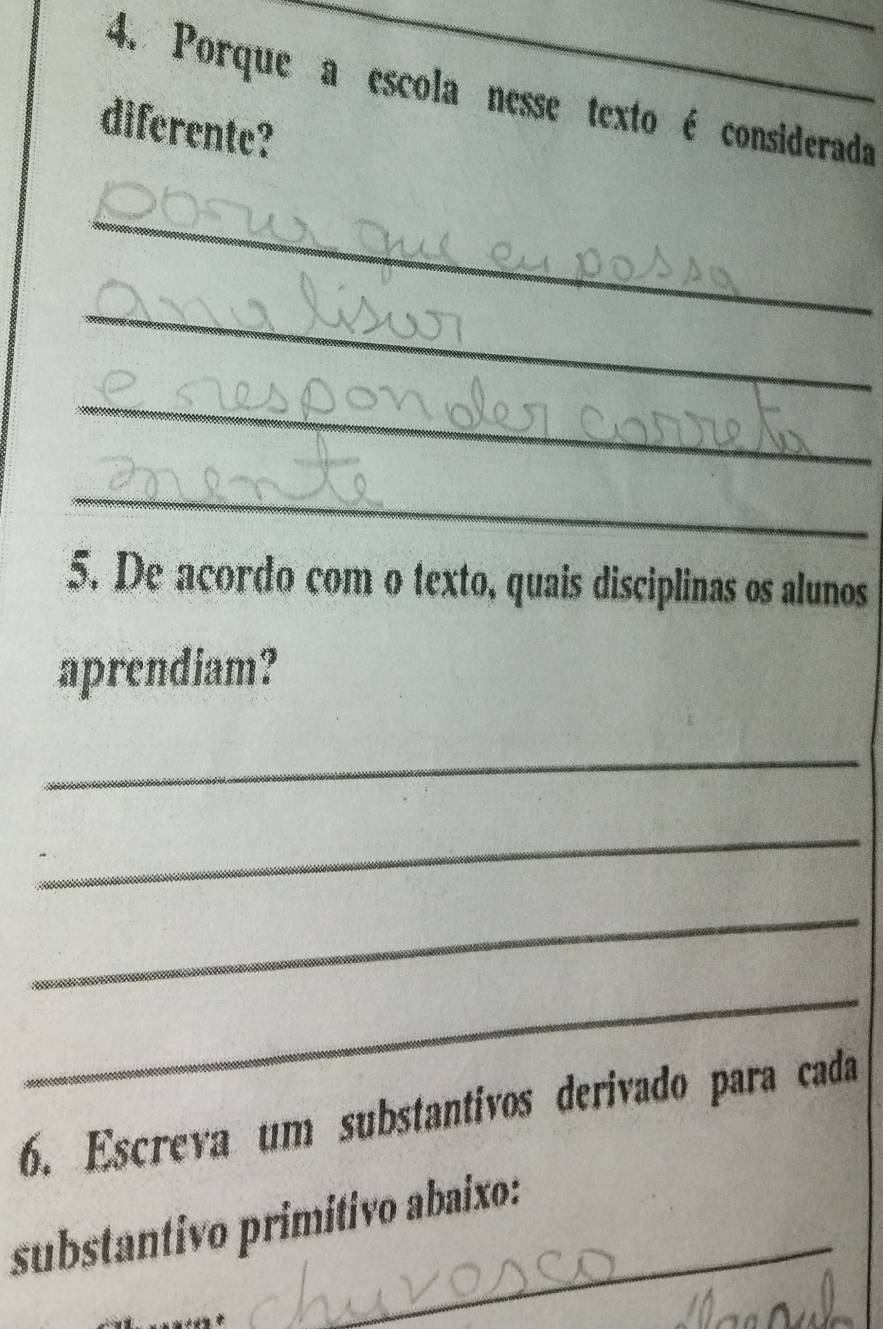 4. Porque a escola nesse texto é considerada
diferente?
que eu possa
analisar
e responder correta
mente
5. De acordo com o texto, quais disciplinas os alunos
aprendiam?
6. Escreva um substantivos derivado para cada
substantivo primitivo abaixo:
chuvosco